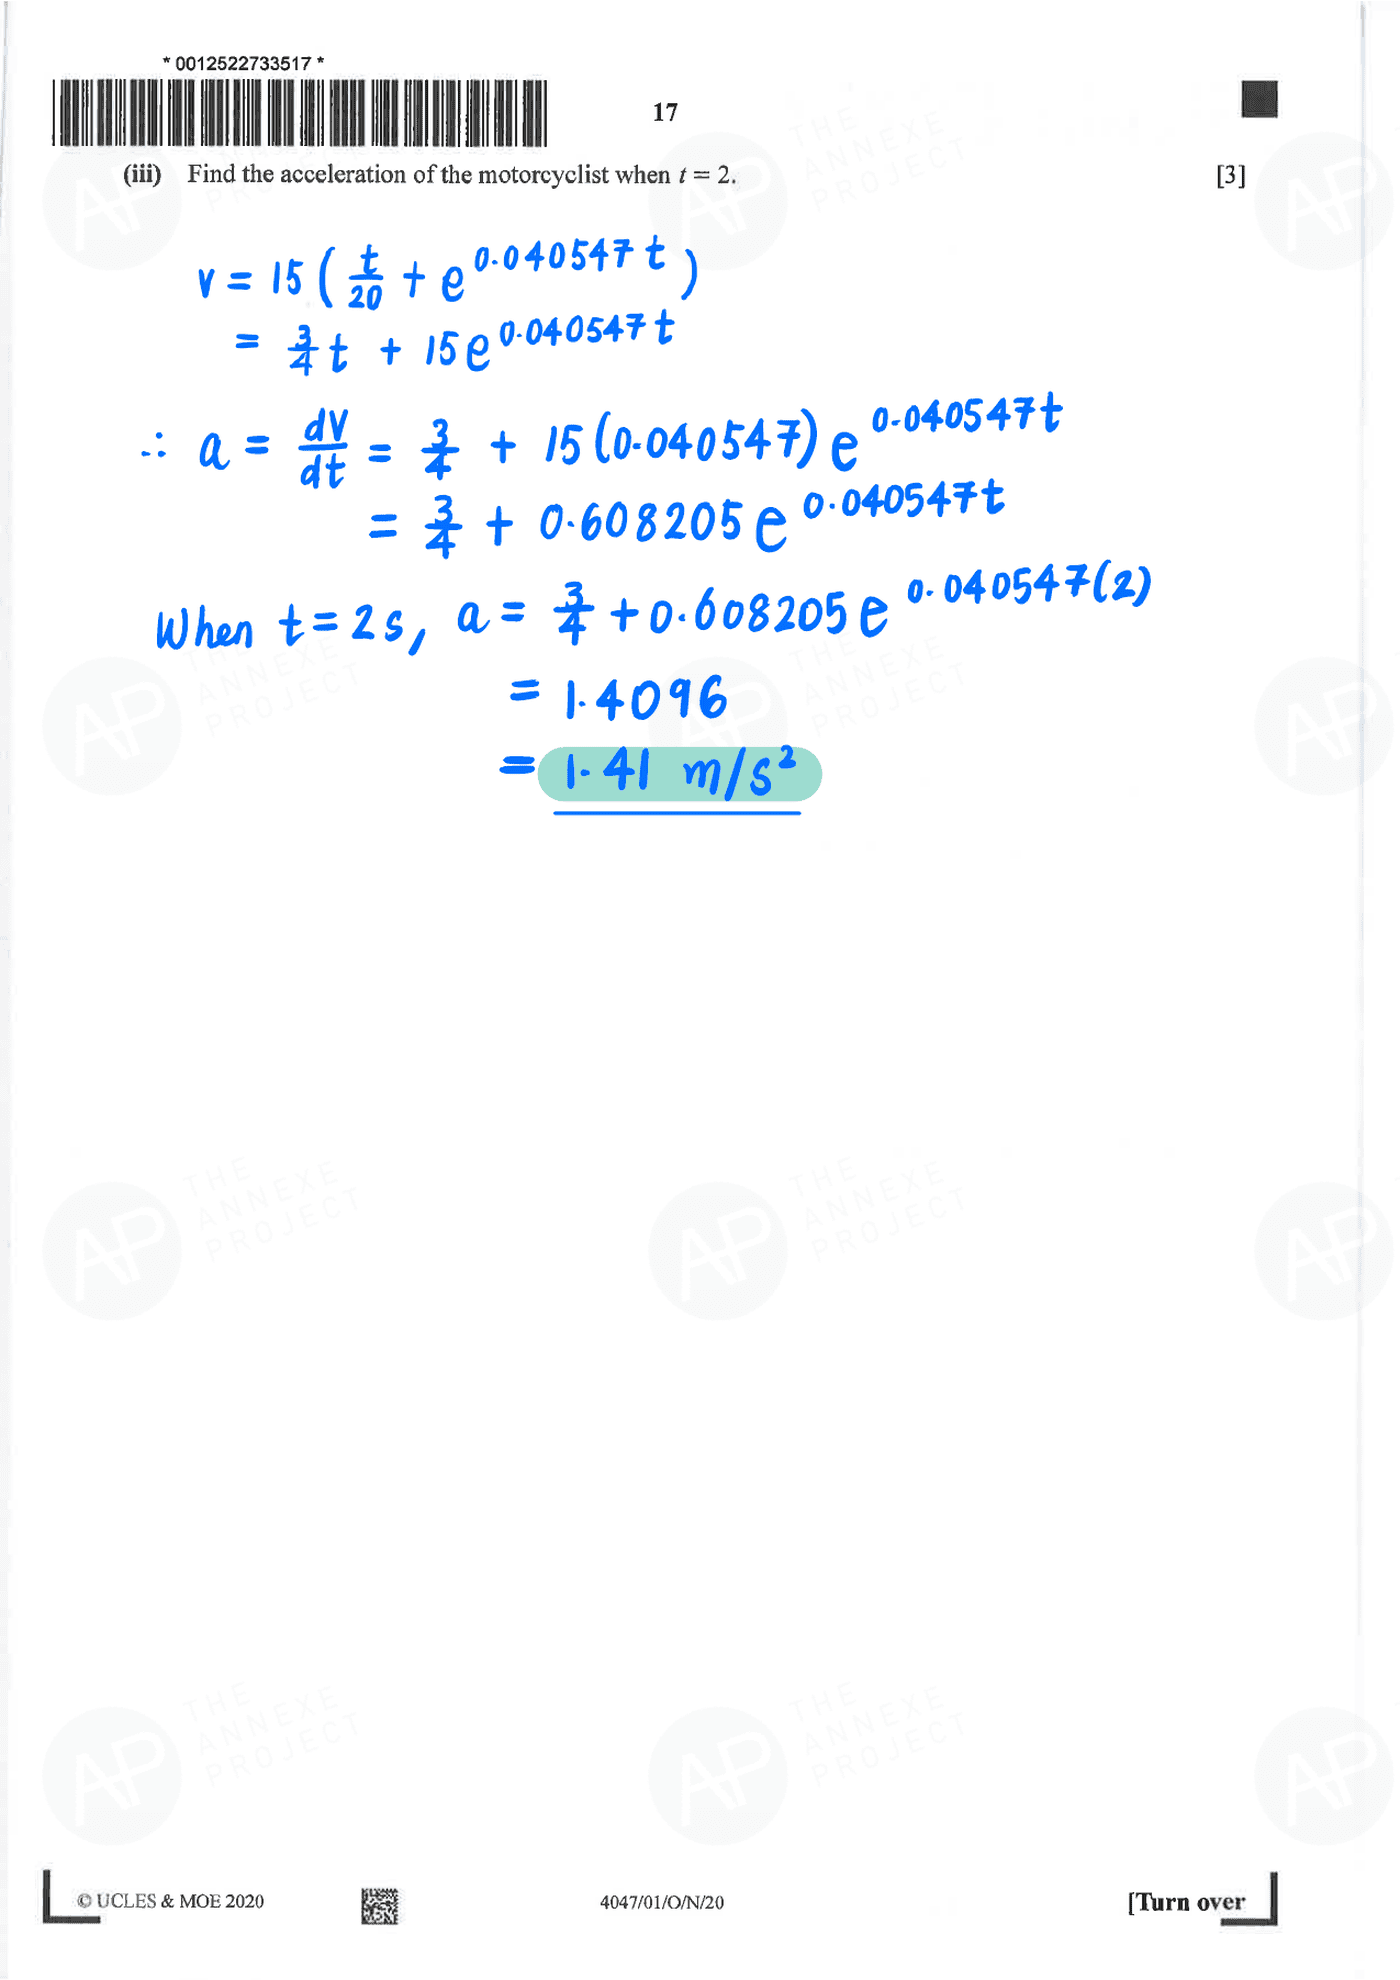 * 0012522733517 *
17
(iii) Find the acceleration of the motorcyclist when t = 2. [3]
v = 15 ( t/20 + e^0.040547t )
= 3/4 t + 15e^0.040547t
∴ a = dv/dt = 3/4 + 15(0.040547) e^0.040547t
= 3/4 + 0.608205 e^0.040547t
When t = 2s, a = 3/4 + 0.608205 e^0.040547(2)
= 1.4096
= 1.41 m/s²
© UCLES & MOE 2020 4047/01/O/N/20 [Turn over
AP THE ANNEXE PROJECT